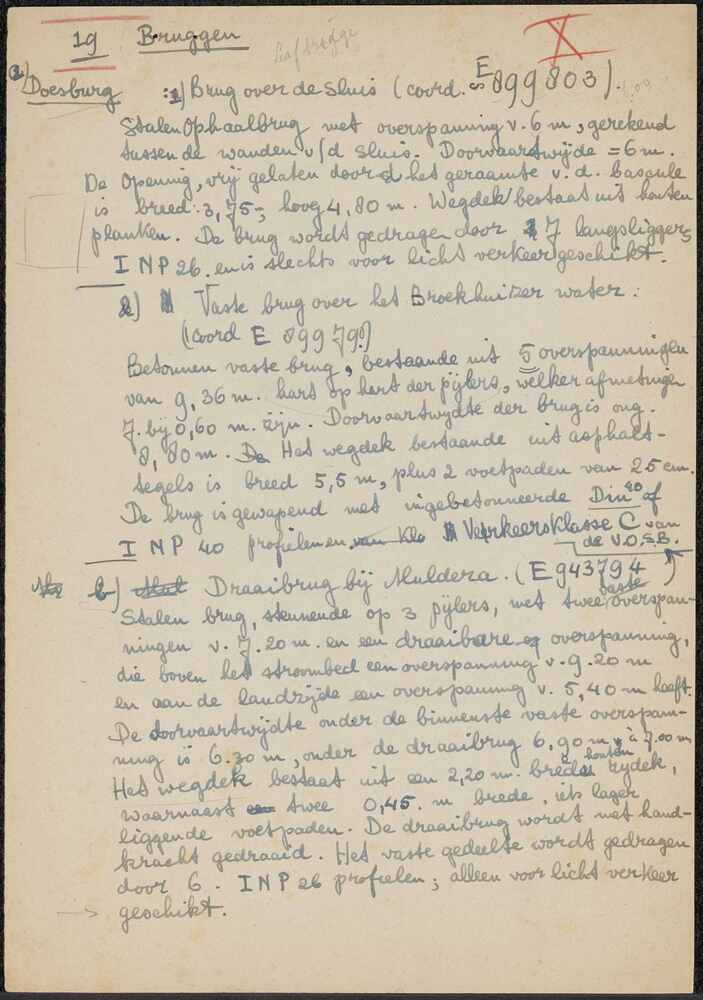 19 Bruggen
a) Doesburg :1) Brug over de sluis (coord. E 899803).
Stalen Ophaalbrug met overspanning v. 6 m, gerekend
tussen de wanden v/d sluis. Doorvaartwijde = 6 m.
De Opening, vrij gelaten door het geraamte v. d. bascule
is breed: 3,75-, hoog 4,80 m. Wegdek bestaat uit houten
planken. De brug wordt gedragen door 7 langsliggers
I NP 26. en is slechts voor licht verkeer geschikt.
2) Vaste brug over het Broekhuizer water:
(coord E 899790)
Betonnen vaste brug, bestaande uit 5 overspanningen
van 9,36 m. hart op hart der pijlers, welker afmetingen
7. bij 0,60 m. zijn. Doorvaartwydte der brug is ong.
8,80 m. De Het wegdek bestaande uit asphalt-
tegels is breed 5,5 m, plus 2 voetpaden van 25 cm.
De brug is gewapend met ingebetonneerde Din 40 of
I NP 40 profielen en van Kla Verkeersklasse C van
de V.O.S.B.
b) Draaibrug bij Muldera. (E 943794)
Stalen brug, steunende op 3 pijlers, met twee vaste overspan-
ningen v. 7.20 m. en een draaibare overspanning,
die boven het stroombed een overspanning v. 9.20 m
en aan de landzijde een overspanning v. 5,40 m heeft.
De doorvaartwijdte onder de binnenste vaste overspan-
ning is 6.30 m, onder de draaibrug 6,90 m à 7.00 m
Het wegdek bestaat uit een 2,20 m. breed houten rydek,
waarnaast een twee 0,45. m brede, iets lager
liggende voetpaden. De draaibrug wordt met hand-
kracht gedraaid. Het vaste gedeelte wordt gedragen
door 6. INP 26 profielen; alleen voor licht verkeer
geschikt.